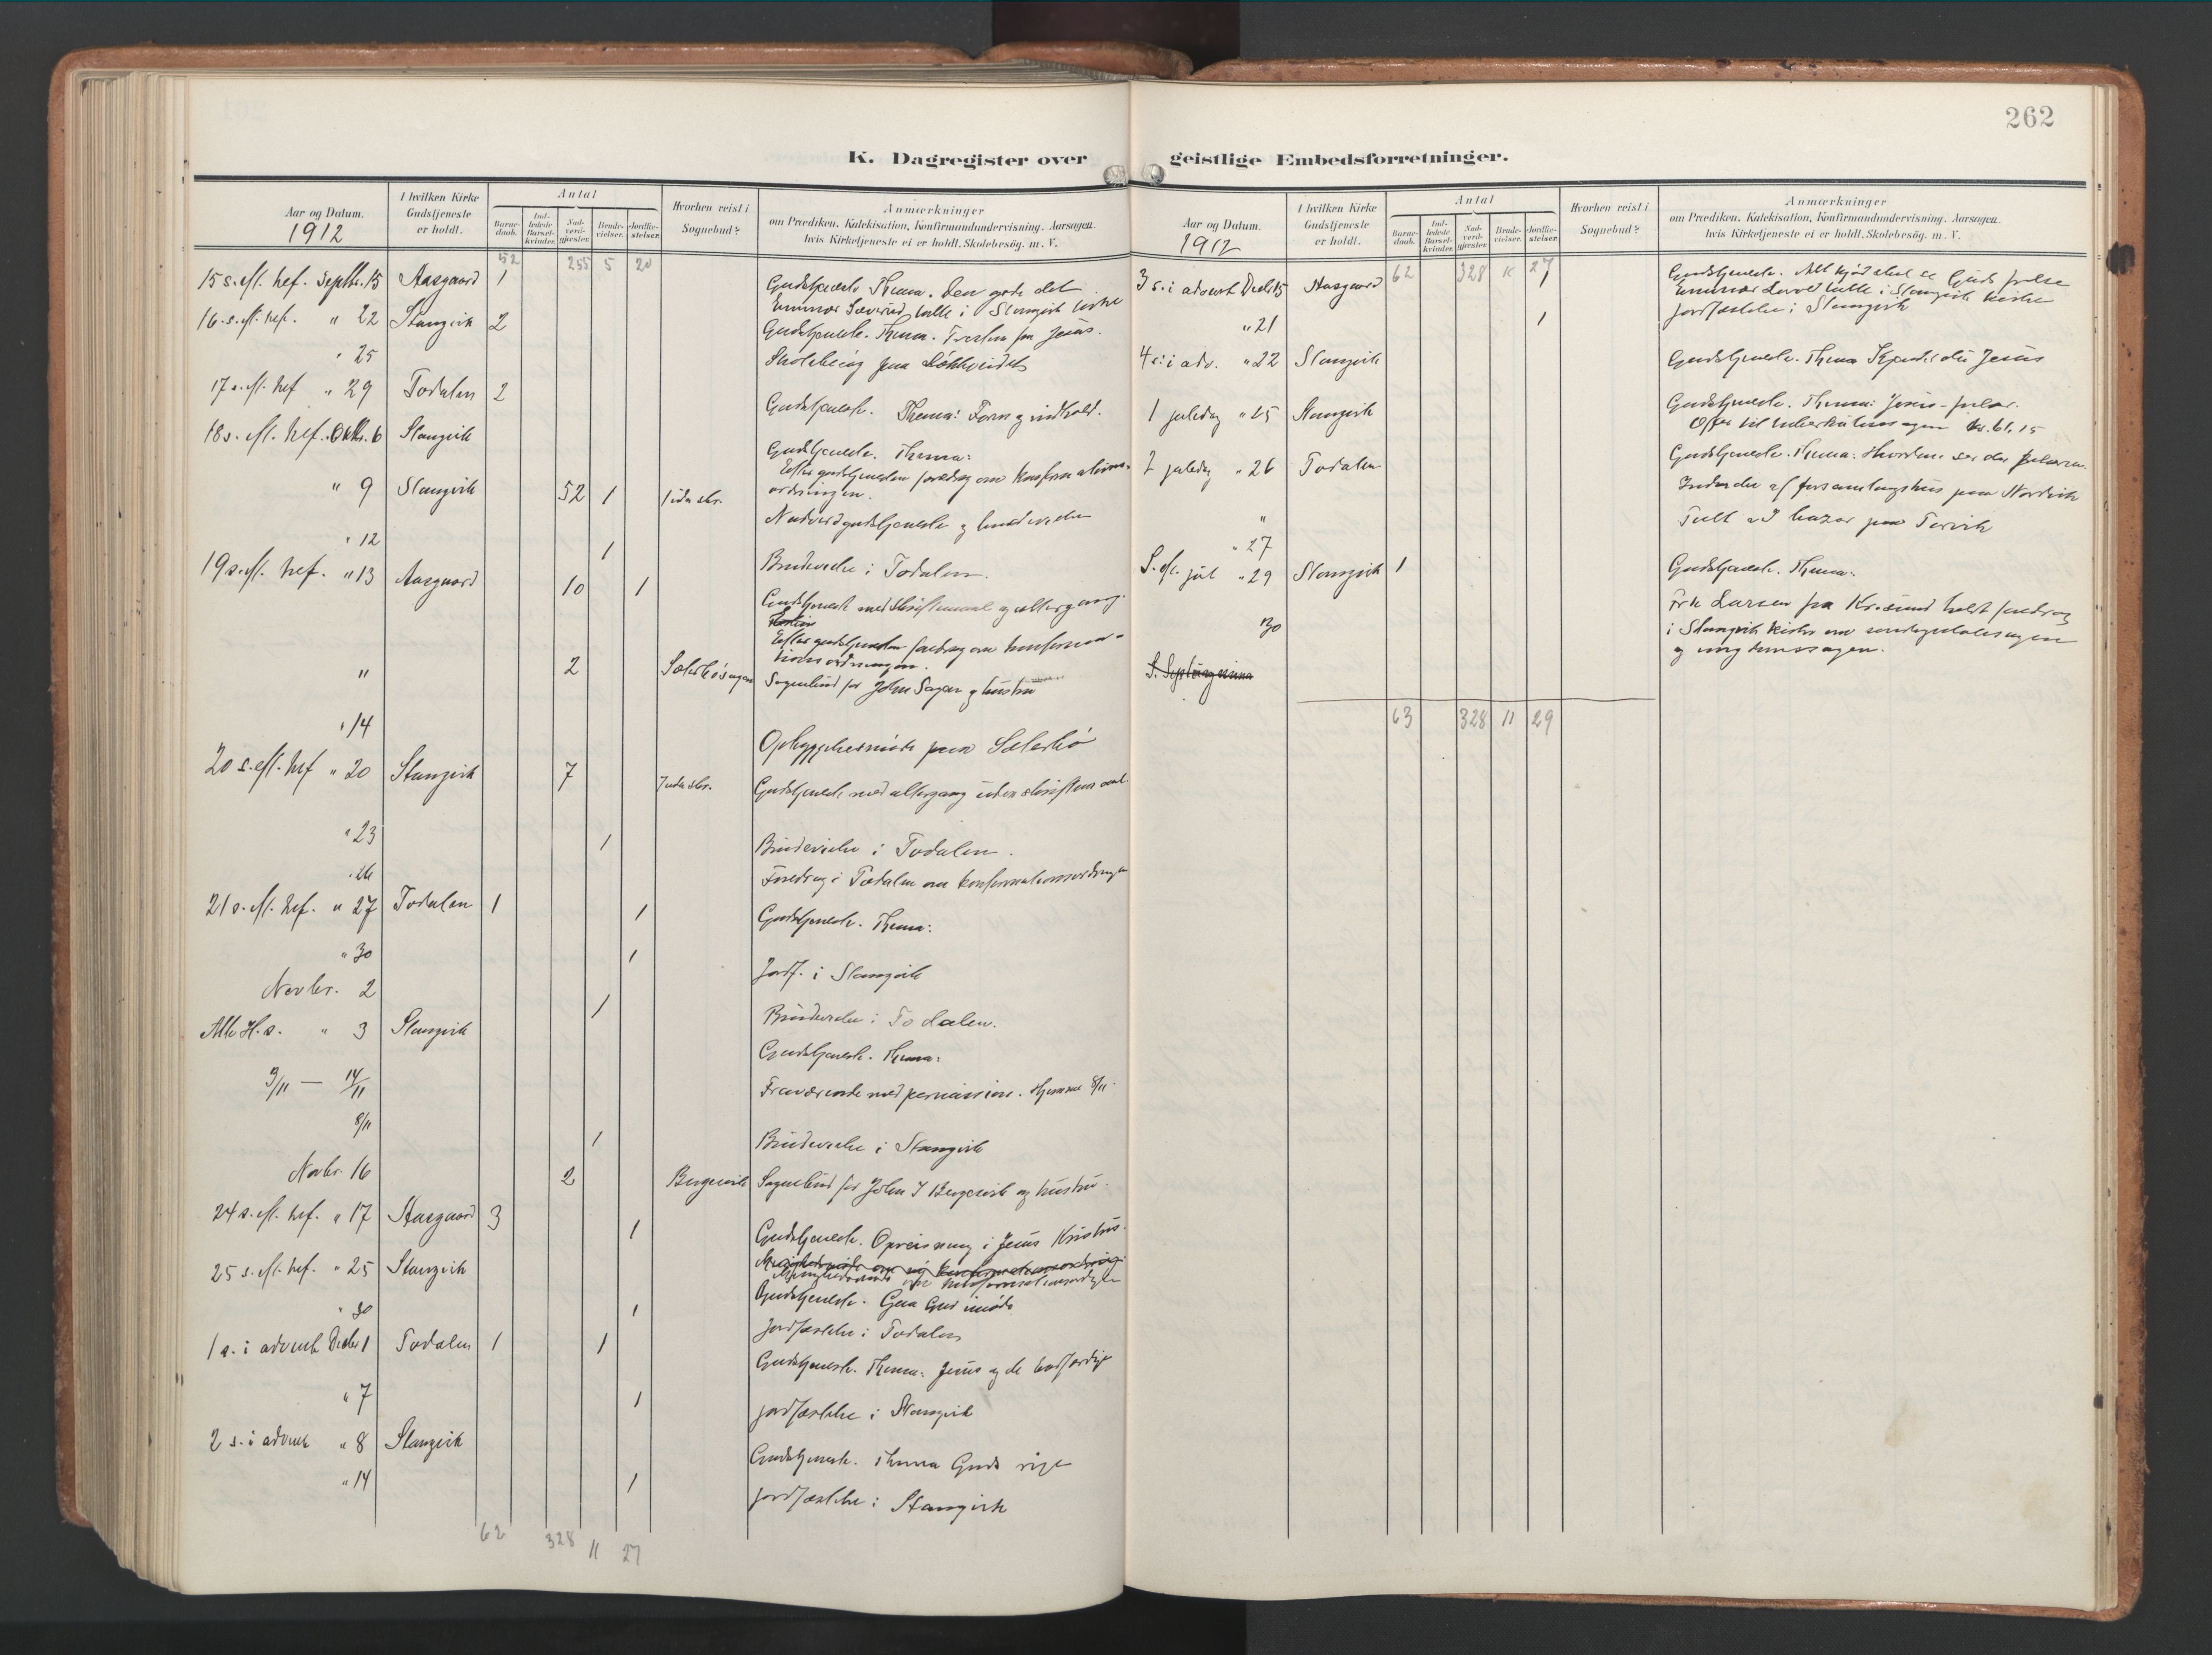 262
K. Dagregister over geistlige Embedsforretninger.
Aar og Datum. 1912
I hvilken Kirke Gudstjeneste er holdt.
Antal
Barne-daab.
Ind-ledede Barsel-kvinder.
Nad-verd-gjester.
Brude-vielser.
Jordfæ-stelser.
Hvorhen reist i Sognebud?
Anmærkninger
om Prædiken, Katekisation, Konfirmandundervisning, Aarsagen,
hvis Kirketjeneste ei er holdt, Skolebesög, m. V.
52 255 5 20
15 s. eft. tref. Septbr. 15 Aasgaard 1 Gudstjeneste Thema. Den gode del
i Stangvik kirke
16. s. eft. tref. " 22 Stangvik 2 Gudstjeneste. Thema. fra Jesus.
" 25 Skolebesøg paa
17 s. eft. tref " 29 Todalen 2 Gudstjeneste. Thema: Form og indhold.
18 s. eft. tref. Oktbr. 6 Stangvik Gudstjeneste. Thema:
Efter gudstjenesten foredrag om konfirmations-
ordningen.
" 9 Stangvik 52 1 Nadverdgudstjeneste og brudevielse
" 12 1 Brudevielse i Todalen.
19 s. eft. tref. " 13 Aasgaard 10 1 Gudstjeneste med skriftemaal og altergang.
Efter gudstjenesten foredrag om konfirma-
tionsordningen.
" 2 Sæterbøsagen Sognebud for John Sagen og hustru
" 14 Opbyggelsesmøte paa Sæterbø
20 s. eft. tref " 20 Stangvik 7 Gudstjeneste med altergang uden skriftemaal
" 23 1 Brudevielse i Todalen.
" 26 Foredrag i Todalen om konfirmationsordningen
21 s. eft. tref. " 27 Todalen 1 1 Gudstjeneste. Thema:
" 30 1 Jordf. i Stangvik
Novbr. 2 1 Brudevielse i Todalen.
Alle H. s. " 3 Stangvik Gudstjeneste. Thema:
9/11 — 14/11 Fraværende med permission. Hjemme 8/11.
8/11 1 Brudevielse i Stangvik
Novbr. 16 2 Bergsvik Sognebud for John J Bergsvik og hustru.
24 s. eft. tref. " 17 Aasgaard 3 1 Gudstjeneste. Opreisning i Jesus Kristus.
Menighedsmøte om konfirmationsordningen
25 s. eft. tref. " 25 Stangvik Gudstjeneste. Gaa Gud imøte
" 30 1 Jordfæstelse i Todalen
1 s. i advent Decbr 1 Todalen 1 1 Gudstjeneste. Thema: Jesus og de
" 7 1 Jordfæstelse i Stangvik
2 s. i advent " 8 Stangvik Gudstjeneste. Thema Guds rige
" 14 1 Jordfæstelse i Stangvik
62 328 11 27
Aar og Datum. 1912
I hvilken Kirke Gudstjeneste er holdt.
Antal
Barne-daab.
Ind-ledede Barsel-kvinder.
Nad-verd-gjester.
Brude-vielser.
Jordfæ-stelser.
Hvorhen reist i Sognebud?
Anmærkninger
om Prædiken, Katekisation, Konfirmandundervisning, Aarsagen,
hvis Kirketjeneste ei er holdt, Skolebesög, m. V.
62 328 11 27
3 s. i advent Decbr 15 Aasgaard 1 Gudstjeneste. Alt kjød skal se Guds frelse
i Stangvik kirke
" 21 1 jordfæstelse i Stangvik
4 s. i adv. " 22 Stangvik Gudstjeneste. Thema Kjender du Jesus
1 juledag " 25 Stangvik Gudstjeneste. Thema:
Offer til tuberkulosesagen kr. 61.15
2 juledag " 26 Todalen Gudstjeneste. Thema: Hvordan ser du
af forsamlingshus paa Nordvik
" 27 bazar paa
S. e. jul " 29 Stangvik 1 Gudstjeneste. Thema:
" 30 Frk Larsen fra Kr.sund holdt foredrag
i Stangvik kirke om søndagsskolesagen
og ungdomssagen.
S. Septuagesima
63 328 11 29